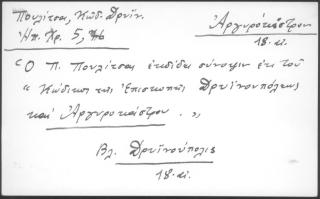 Πουλίτσα, Κώδ. Δρυϊν.
Ἀργυρόκαστρον
Ἠπ. Χρ. 5,
18. αἰ.
Ὁ Π. Πουλίτσας ἐκδίδει σύνοψιν ἐκ τοῦ
"Κώδικος τῆς Ἐπισκοπῆς Δρυϊνουπόλεως
καὶ Ἀργυροκάστρου."
Βλ. Δρυϊνούπολις
18. αἰ.